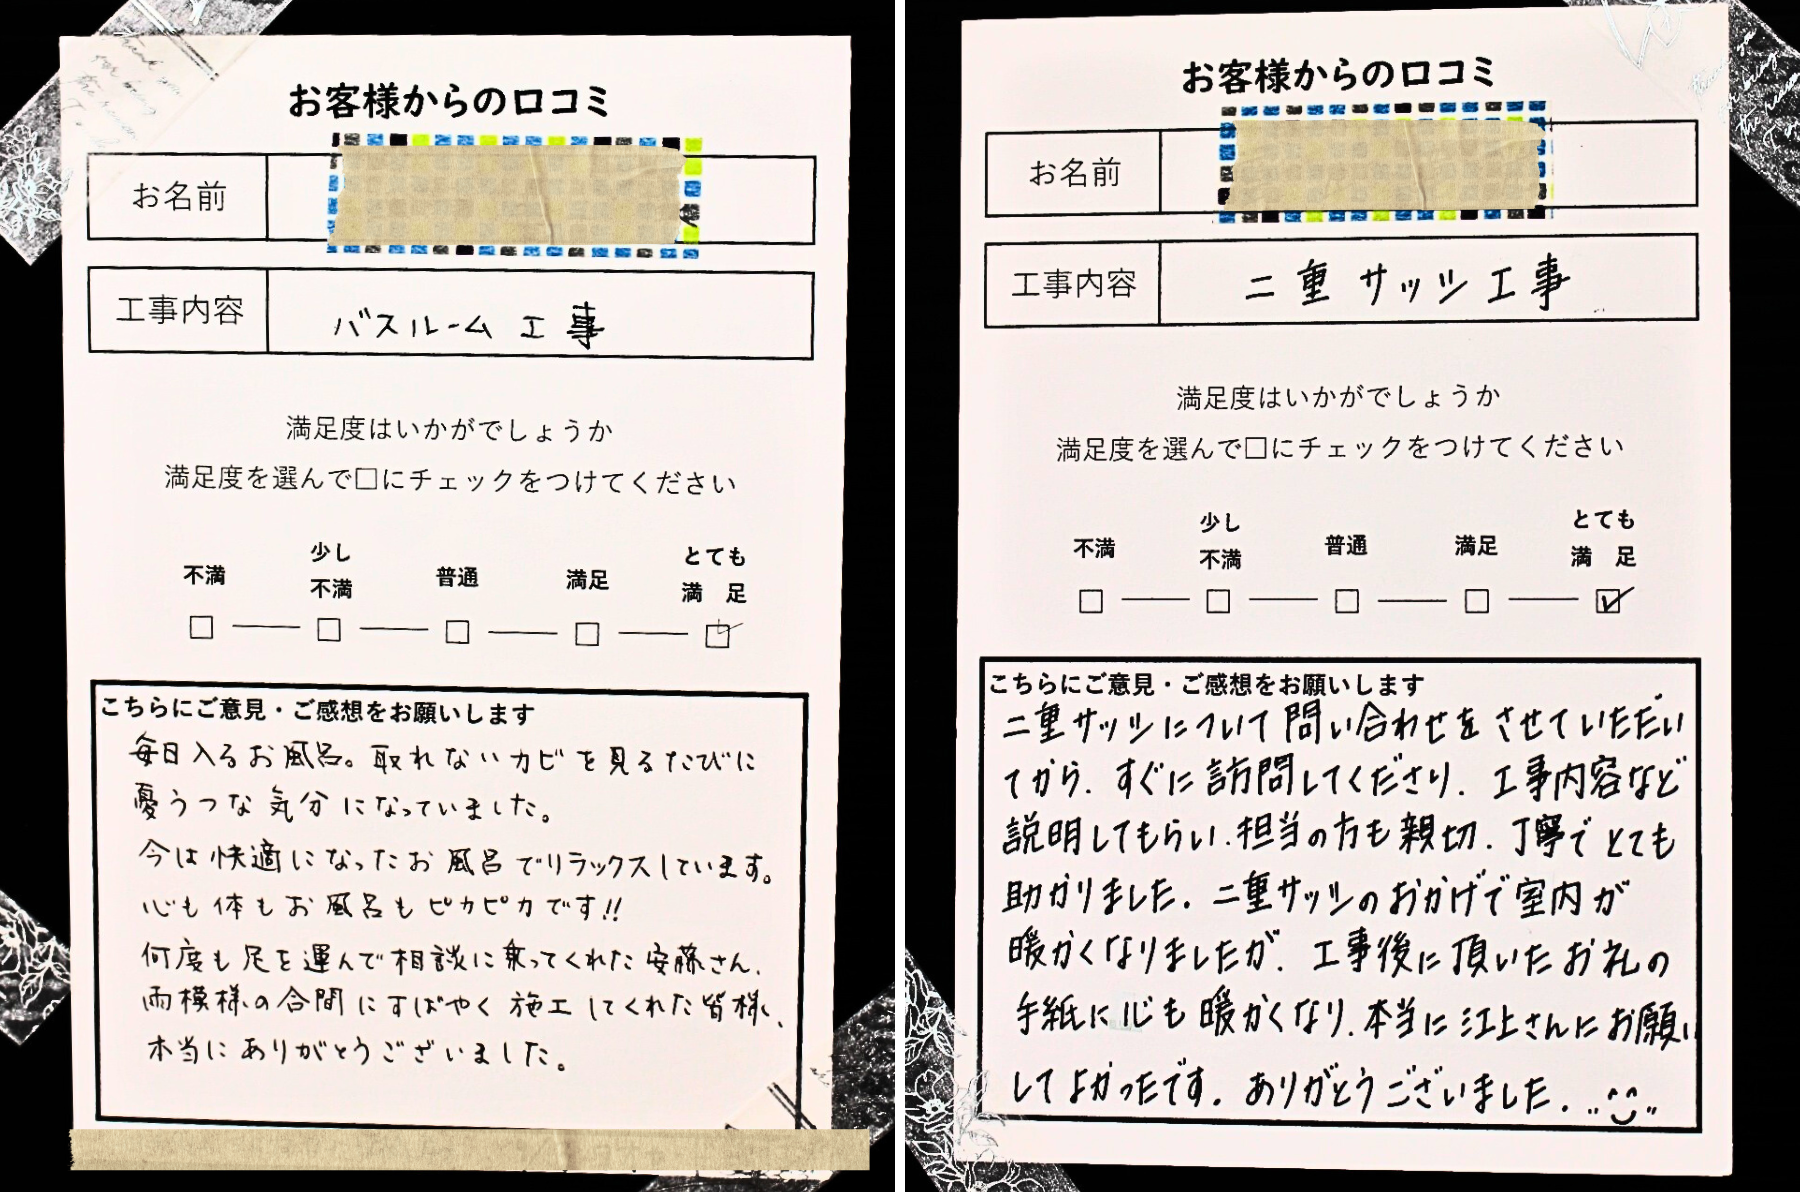 お客様からの口コミ
お名前
工事内容 バスルーム工事
満足度はいかがでしょうか
満足度を選んで□にチェックをつけてください
不満 少し不満 普通 満足 とても満足
こちらにご意見・ご感想をお願いします
毎日入るお風呂。取れないカビを見るたびに
憂うつな気分になっていました。
今は快適になったお風呂でリラックスしています。
心も体もお風呂もピカピカです!!
何度も足を運んで相談に乗ってくれた安藤さん、
雨模様の合間にすばやく施工してくれた皆様、
本当にありがとうございました。
お客様からの口コミ
お名前
工事内容 二重サッシ工事
満足度はいかがでしょうか
満足度を選んで□にチェックをつけてください
不満 少し不満 普通 満足 とても満足
こちらにご意見・ご感想をお願いします
二重サッシについて問い合わせをさせていただい
てから、すぐに訪問してくださり、工事内容など
説明してもらい、担当の方も親切、丁寧でとても
助かりました。二重サッシのおかげで室内が
暖かくなりましたが、工事後に頂いたお礼の
手紙に心も暖かくなり、本当に江上さんにお願い
してよかったです。ありがとうございました。